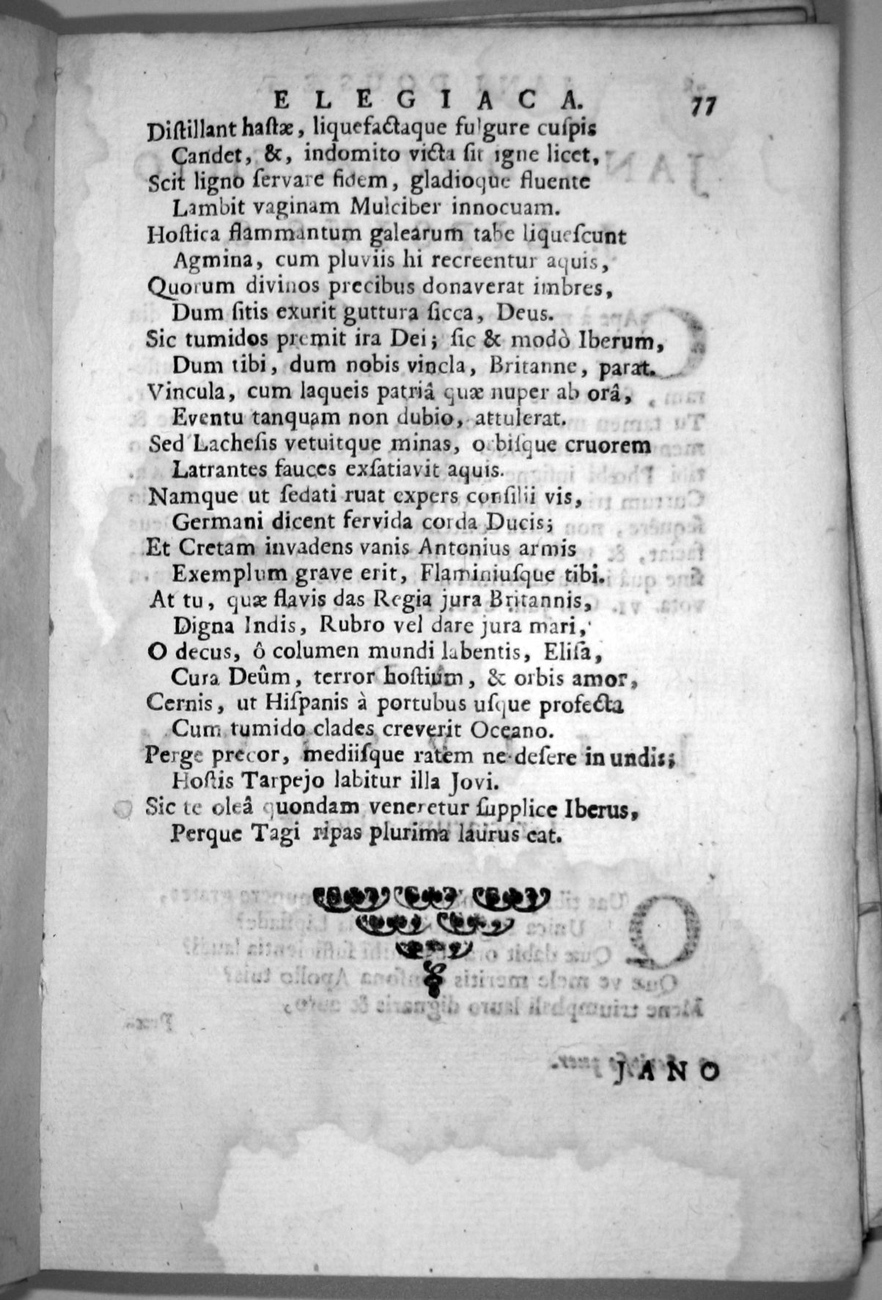 ELEGIACA. 77
Diſtillant haſtæ, liquefactaque fulgure cuſpis
Candet, &, indomito victa ſit igne licet,
Scit ligno ſervare fidem, gladioque fluente
Lambit vaginam Mulciber innocuam.
Hoſtica flammantum galearum tabe liqueſcunt
Agmina, cum pluviis hi recreentur aquis,
Quorum divinos precibus donaverat imbres,
Dum ſitis exurit guttura ſicca, Deus.
Sic tumidos premit ira Dei; ſic & modò Iberum,
Dum tibi, dum nobis vincla, Britanne, parat.
Vincula, cum laqueis patriâ quæ nuper ab orâ,
Eventu tanquam non dubio, attulerat.
Sed Lacheſis vetuitque minas, orbiſque cruorem
Latrantes fauces exſatiavit aquis.
Namque ut ſedati ruat expers conſilii vis,
Germani dicent fervida corda Ducis;
Et Cretam invadens vanis Antonius armis
Exemplum grave erit, Flaminiuſque tibi.
At tu, quæ flavis das Regia jura Britannis,
Digna Indis, Rubro vel dare jura mari,
O decus, ô columen mundi labentis, Eliſa,
Cura Deûm, terror hoſtium, & orbis amor,
Cernis, ut Hiſpanis à portubus uſque profecta
Cum tumido clades creverit Oceano.
Perge precor, mediiſque ratem ne deſere in undis;
Hoſtis Tarpejo labitur illa Jovi.
Sic te oleâ quondam veneretur ſupplice Iberus,
Perque Tagi ripas plurima laurus eat.
JANO